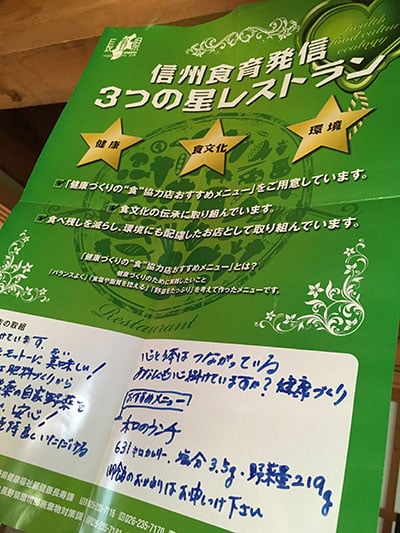 長野県
health
food culture
ecology
信州食育発信
3つの星レストラン
健康
食文化
環境
「健康づくりの"食"協力店おすすめメニュー」をご用意しています。
食文化の伝承に取り組んでいます。
食べ残しを減らし、環境にも配慮したお店として取り組んでいます。
「健康づくりの"食"協力店おすすめメニュー」とは?
健康づくりのために実践したいこと
「バランスよく」「食塩や脂質を控える」「野菜をたっぷり」を考えて作ったメニューです。
Restaurant
の取組
けています
モットーに美味しい!
は肥料づくりから
自家野菜で
安心!
いただける
心と体はつながっている
みなさん心掛けていますか?健康づくり
おすすめメニュー
和のランチ
631キロカロリー、塩分3.5g・野菜量219g
のおかわりはお申しつけ下さい
健康長寿課
026-235-7116
026-235-7170
廃棄物対策課